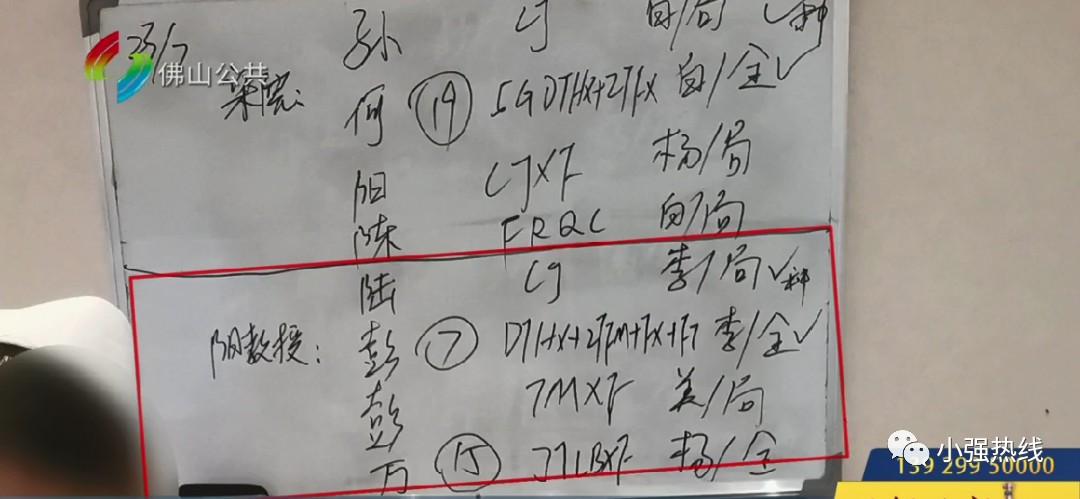 25/7 孙 LJ 白/局 ✓种
佛山公共
梁院: 何 ⑲ DTHX+ZTFX 白/全✓
阳 LJXF 杨/局
陈 FRQC 白/局
陆 LJ 李/局✓种
阴教授: 彭 ⑦ DTHX+ZTFM+FX+FT 李/全✓
彭 TMXF 美/局
万 ⑮ JTLBXF 杨/全
小强热线
139 299 50000